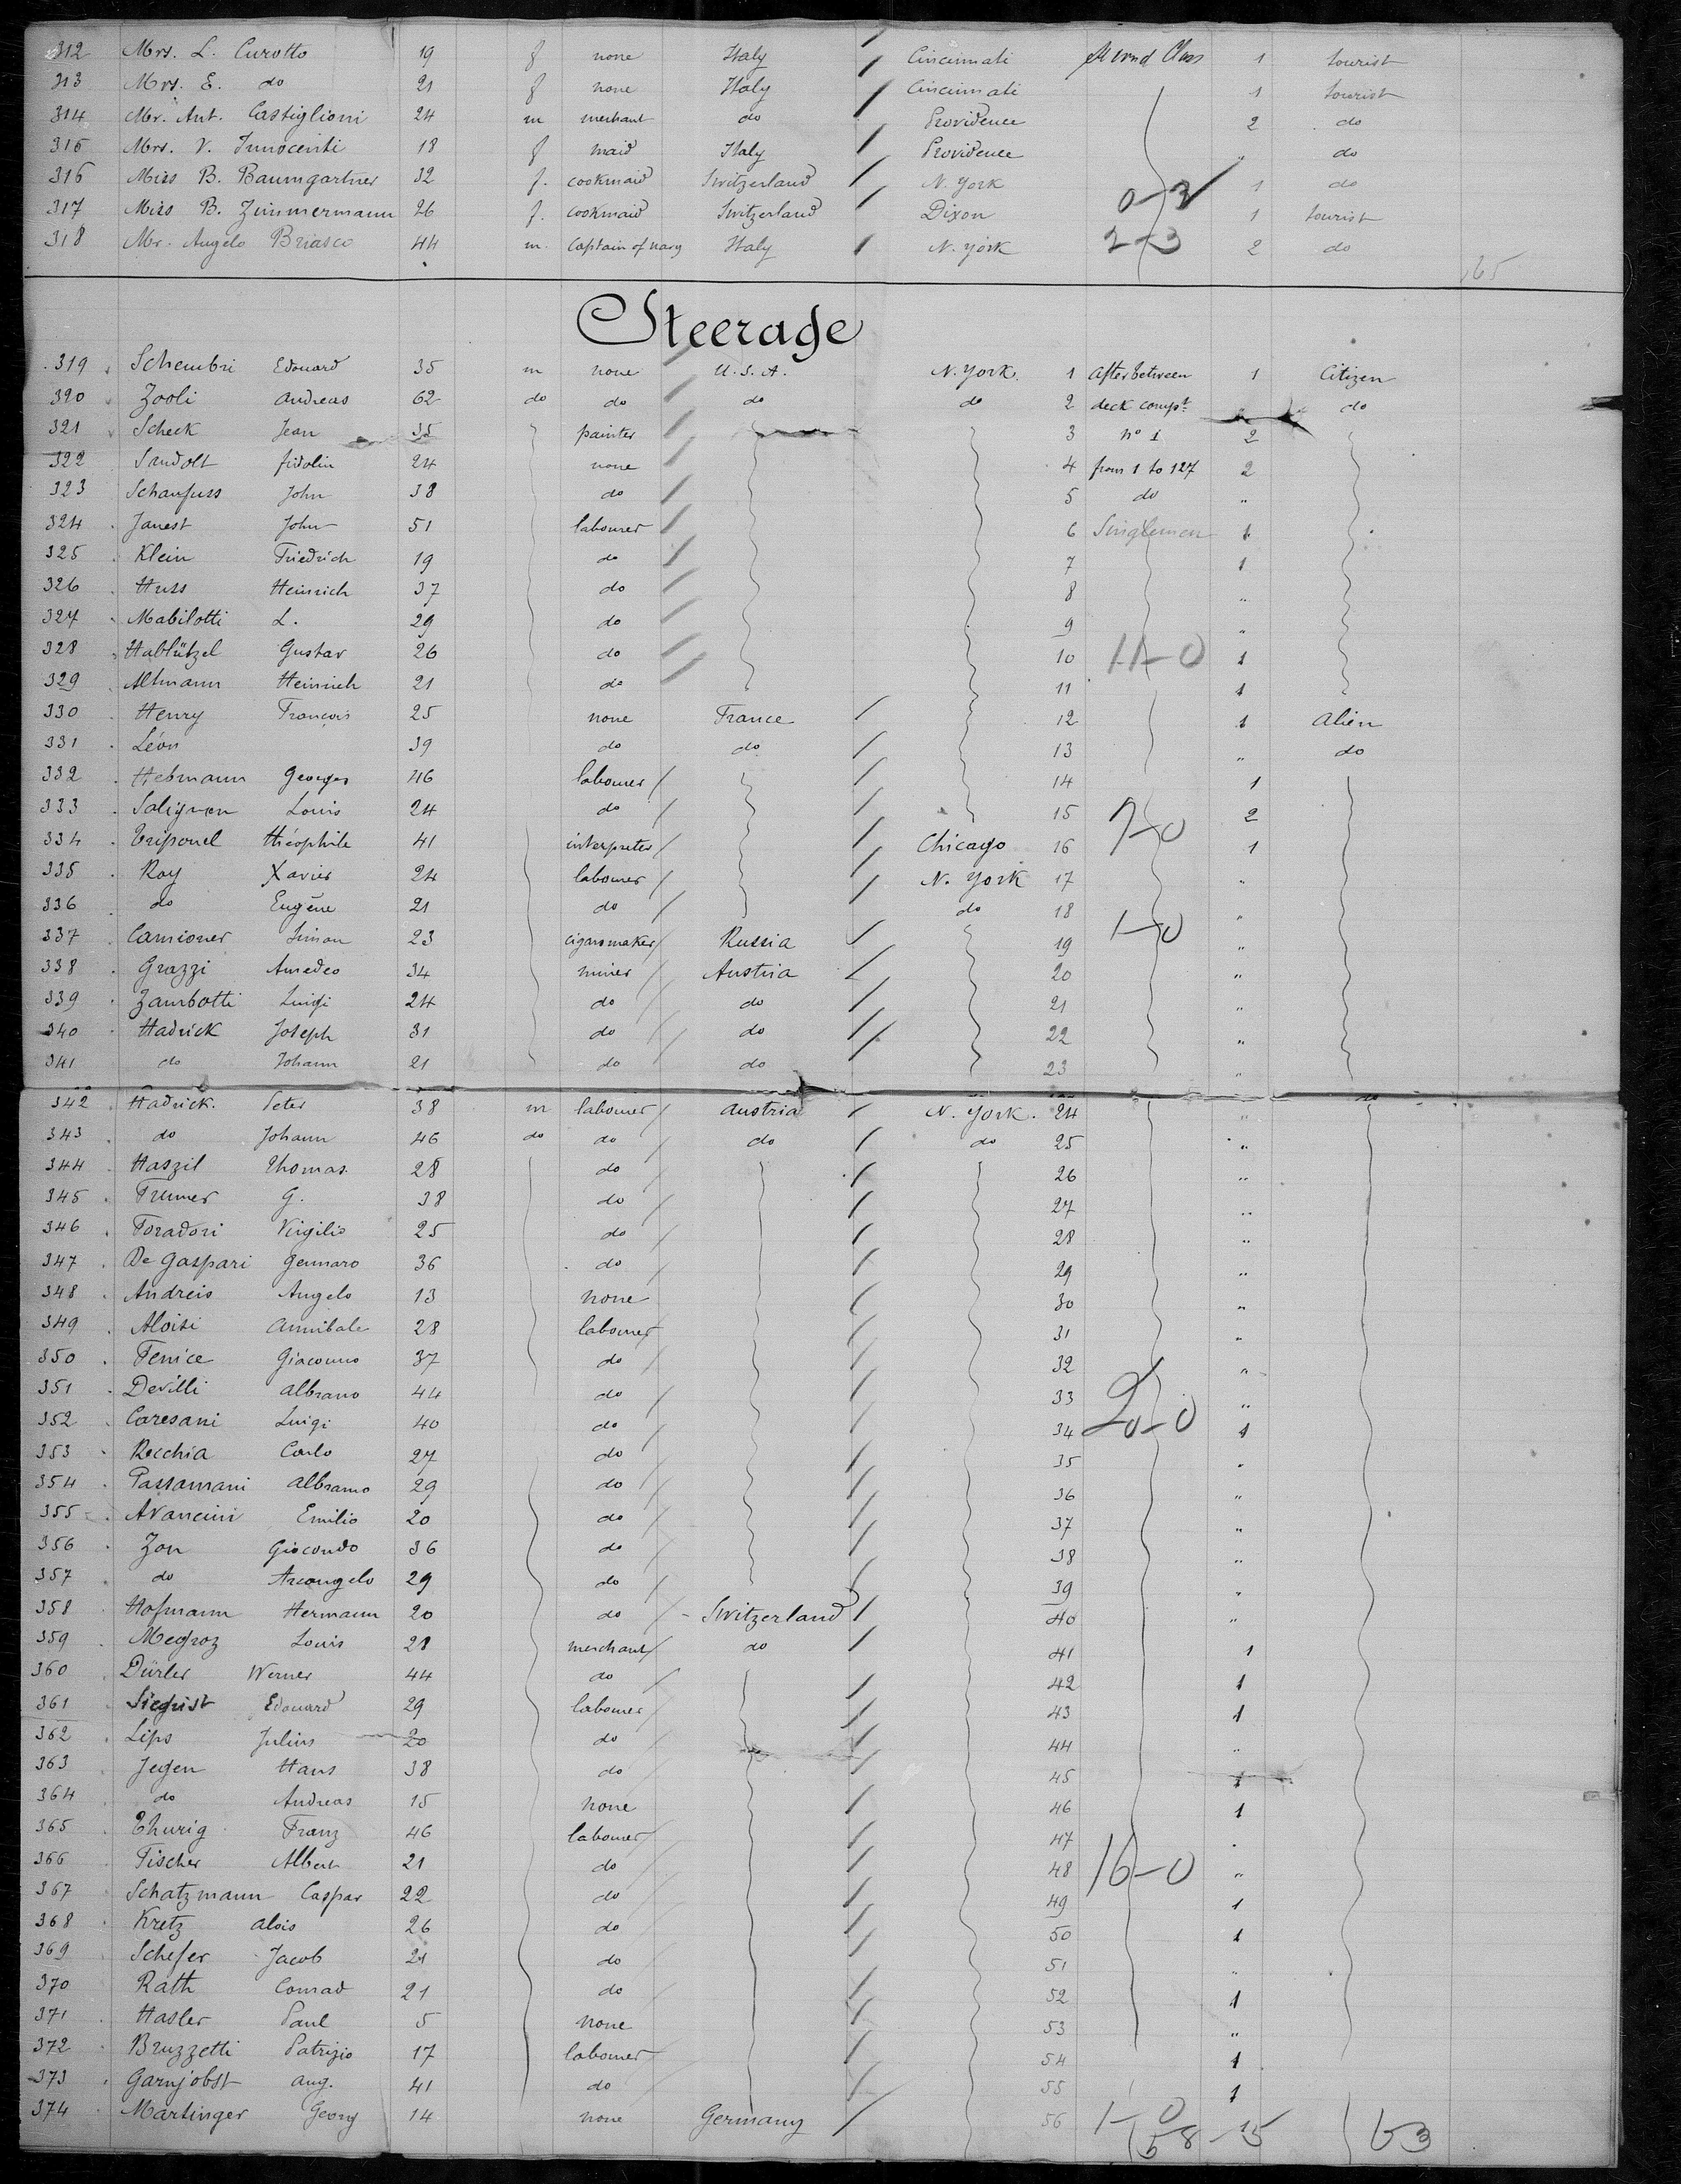 312 Mrs. L. Curotto 19 f none Italy Cincinnati Second Class 1 tourist
313 Mrs. E. do 21 f none Italy Cincinnati 1 tourist
314 Mr. Ant. Castiglioni 24 m merchant do Providence 2 do
315 Mrs. V. Innocenti 18 f maid Italy Providence " do
316 Miss B. Baumgartner 32 f. cookmaid Switzerland N. York 0-3 1 do
317 Miss B. Zimmermann 26 f. cookmaid Switzerland Dixon 1 tourist
318 Mr. Angelo Briasco 44 m. Captain of navy Italy N. York 2-3 2 do
165
Steerage
319 Schembri Edouard 35 m none U.S.A. N. York. 1 After between 1 Citizen
320 Zooli Andreas 62 do do do do 2 deck compt. " do
321 Scheck Jean 35 painter 3 n° 1 2
322 Sandolt fidolin 24 none 4 from 1 to 127 2
323 Schaufuss John 38 do 5 do "
324 Janest John 51 labourer 6 Singlemen 1
325 Klein Friedrich 19 do 7 1
326 Huss Heinrich 37 do 8 "
327 Mabilotti L. 29 do 9 "
328 Hablützel Gustav 26 do 10 11-0 1
329 Altmann Heinrich 21 do 11 1
330 Henry François 25 none France 12 1 Alien
331 Léon 39 do do 13 " do
332 Hebmann Georges 46 labourer 14 1
333 Louis 24 do 15 7-0 2
334 Théophile 41 interpreter Chicago 16 1
335 Roy Xavier 24 labourer N. York 17 "
336 do Eugène 21 do do 18 "
337 Camioner Simon 23 cigarsmaker Russia 19 1-0 "
338 Grazzi Amedeo 34 miner Austria 20 "
339 Zambotti Luigi 24 do do 21 "
340 Hadrick Joseph 31 do do 22 "
341 do Johann 21 do do 23 "
342 Hadrick. Peter 38 m labourer Austria N. York. 24 " do
343 do Johann 46 do do do do 25 "
344 Haszil Thomas 28 do 26 "
345 G. 38 do 27 "
346 Foradori Virgilio 25 do 28 "
347 De Gaspari Gennaro 36 do 29 "
348 Andreis Angelo 13 none 30 "
349 Aloisi Annibale 28 labourer 31 "
350 Fenice Giacomo 37 do 32 "
351 Devilli Albramo 44 do 33 "
352 Caresani Luigi 40 do 34 20-0 1
353 Recchia Carlo 27 do 35 "
354 Passamani Albramo 29 do 36 "
355 Avancini Emilio 20 do 37 "
356 Zon Giocondo 36 do 38 "
357 do Arcangelo 29 do 39 "
358 Hofmann Hermann 20 do Switzerland 40 "
359 Megroz Louis 28 merchant do 41 1
360 Dürler Werner 44 do 42 1
361 Siegrist Edouard 29 labourer 43 1
362 Lips Julius 20 do 44 "
363 Jegen Hans 38 do 45 1
364 do Andreas 15 none 46 1
365 Thurig Franz 46 labourer 47 "
366 Fischer Albert 21 do 48 16-0 "
367 Schatzmann Caspar 22 do 49 1
368 Kretz Alois 26 do 50 1
369 Schefer Jacob 21 do 51 "
370 Rath Conrad 21 do 52 1
371 Hasler Paul 5 none 53 "
372 Bruzzetti Patrizio 17 labourer 54 1
373 Garnjobst Aug. 41 do 55 1
374 Martinger Georg 14 none Germany 56 1-0
58-15 63